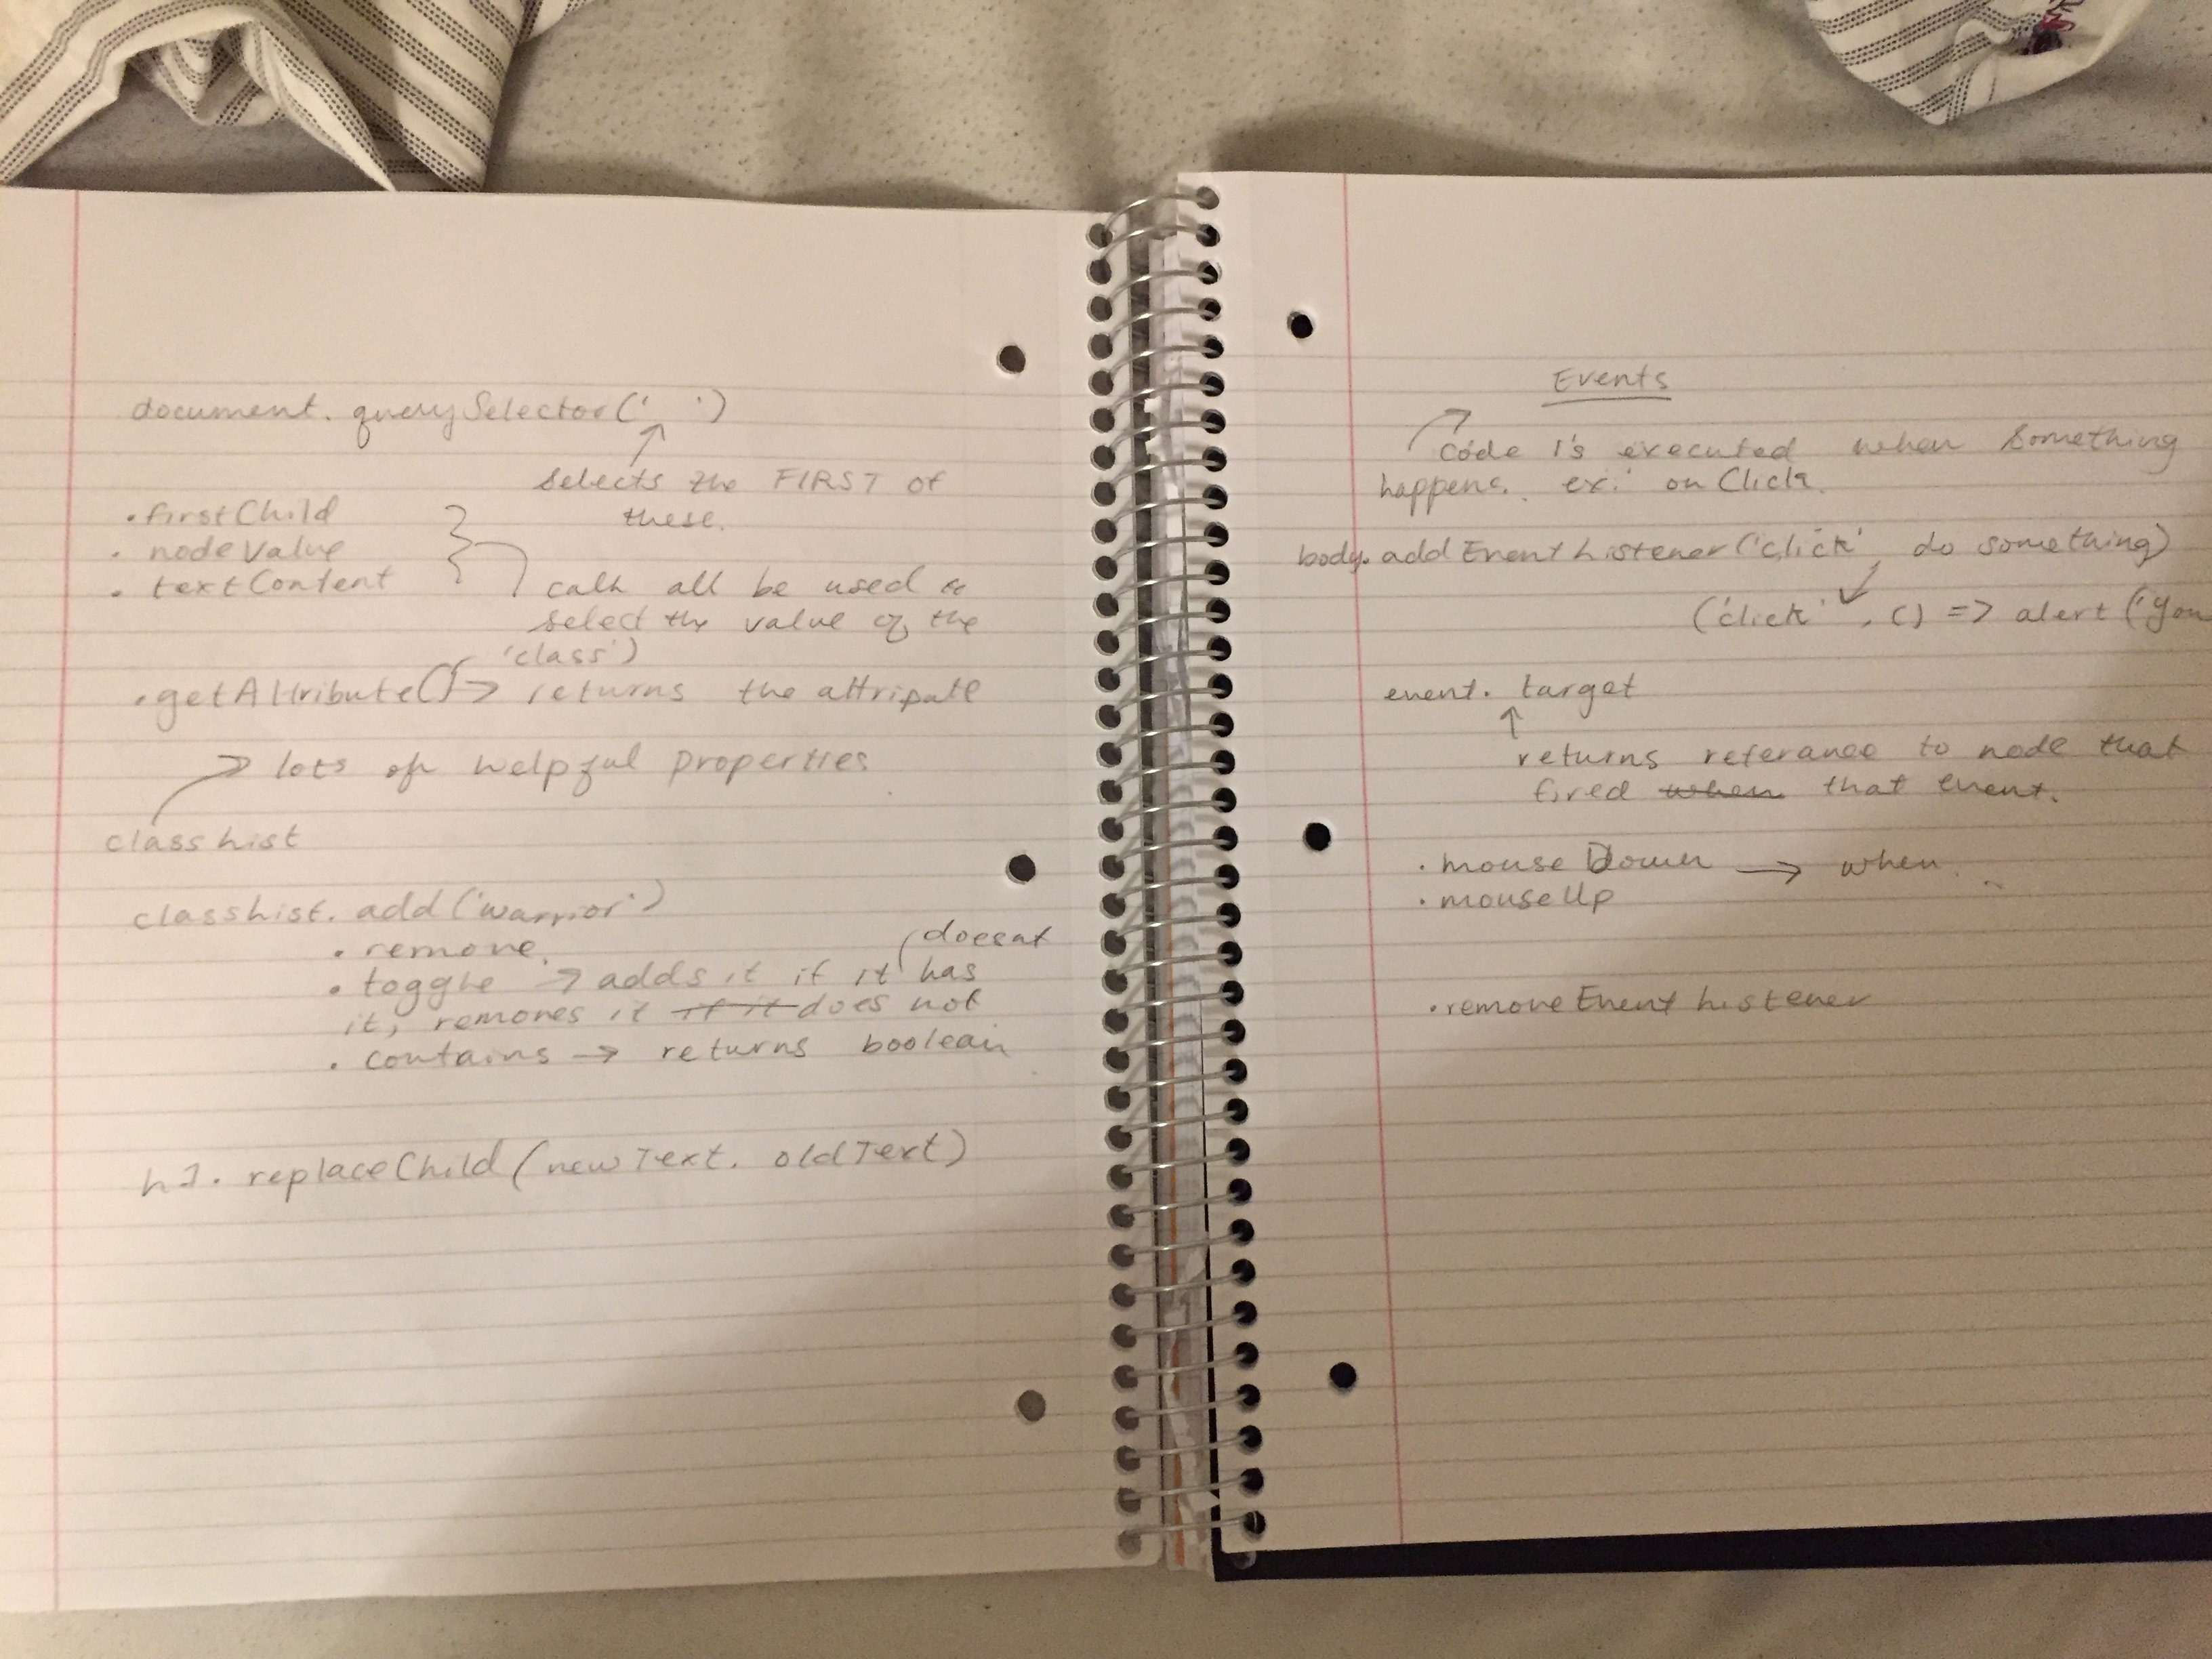 document.querySelector(' ')
↑
selects the FIRST of
these.
.firstChild
.nodeValue
.textContent } call all be used to
select the value of the
'class')
.getAttribute( → returns the attribute
→ lots of helpful properties
classList
classList.add('warrior')
• remove
(doesnt
• toggle → adds it if it has
it, removes it if it does not
• contains → returns boolean
h1.replaceChild(newText, oldText)
Events
code is executed when something
happens. ex: onClick
body.addEventListener('click', do something)
('click', () => alert('you
event.target
↑
returns referance to node that
fired when that event.
• mouseDown → when..
• mouseUp
• removeEventListener